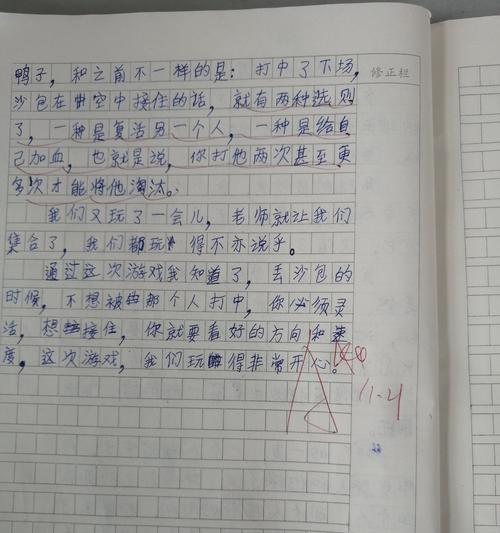 鸭子，和之前不一样的是：打中了下场，
修正栏
沙包在半空中接住的话，就有两种选则
了，一种是复活另一个人，一种是给自
己加血，也就是说，你打他两次甚至更
多次才能将他淘汰。
我们又玩了一会儿，老师就让我们
集合了，我们都玩得不亦说乎。
通过这次游戏我知道了，丢沙包的
时候，不想被那个人打中，你必须灵
活，想接住，你就要看好的方向和速
度，这次游戏，我们玩得非常开心。
11.21